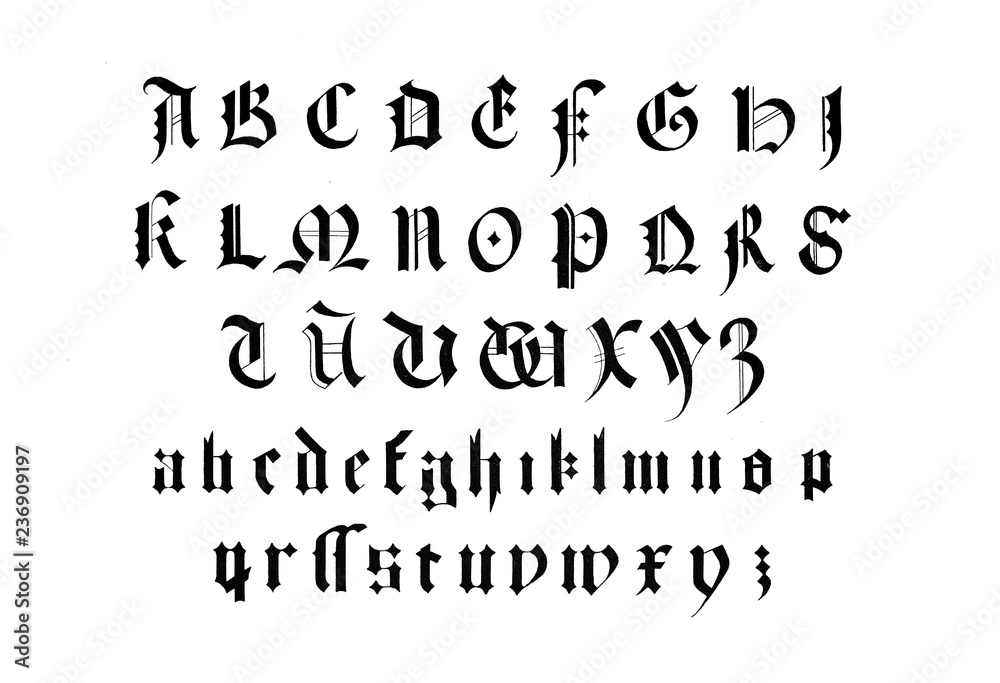 A B C D E F G H I
K L M N O P Q R S
T U V W X Y Z
a b c d e f g h i k l m n o p
q r ſſ s t u v w x y z
Adobe Stock | #236909197